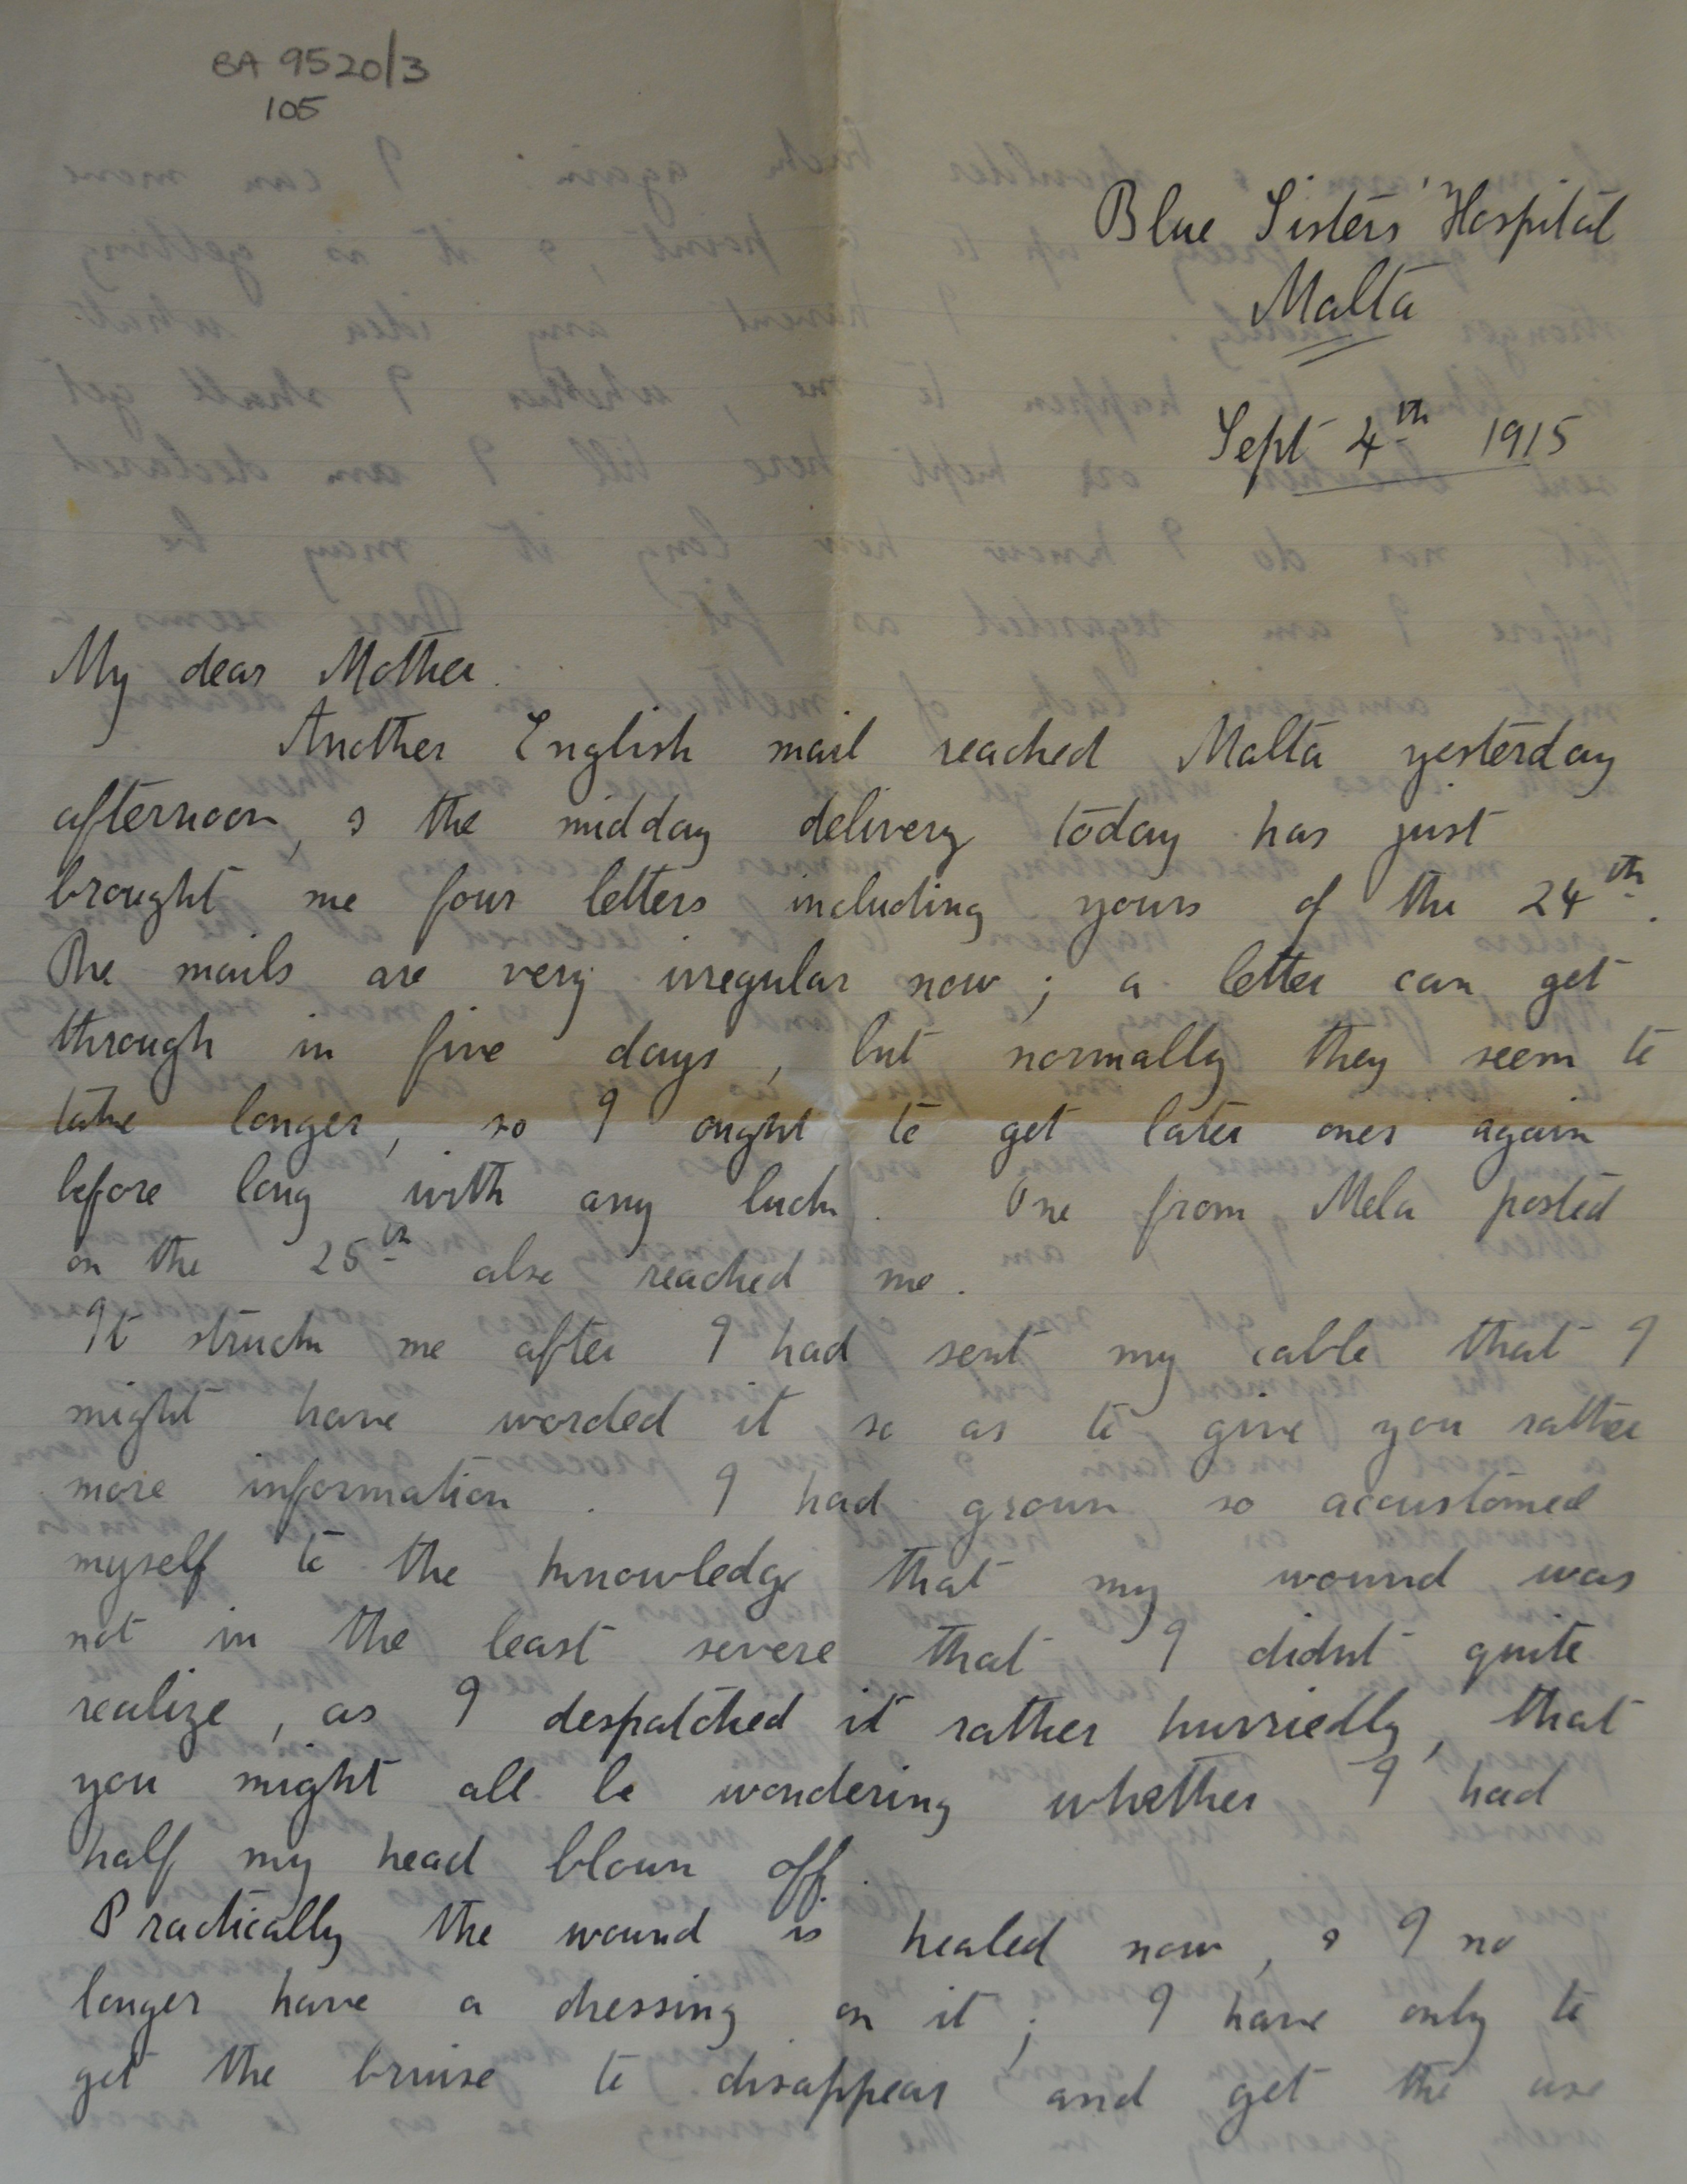 BA 9520/3
105
Blue Sisters' Hospital
Malta
Sept 4th 1915
My dear Mother.
Another English mail reached Malta yesterday
afternoon, & the midday delivery today has just
brought me four letters including yours of the 24th.
The mails are very irregular now; a letter can get
through in five days, but normally they seem to
take longer, so I ought to get later ones again
before long with any luck. One from Mela posted
on the 25th also reached me.
It struck me after I had sent my cable that I
might have worded it so as to give you rather
more information. I had grown so accustomed
myself to the knowledge that my wound was
not in the least severe that I didnt quite
realize, as I despatched it rather hurriedly, that
you might all be wondering whether I had
half my head blown off.
Practically the wound is healed now, & I no
longer have a dressing on it; I have only to
get the bruise to disappear and get the use